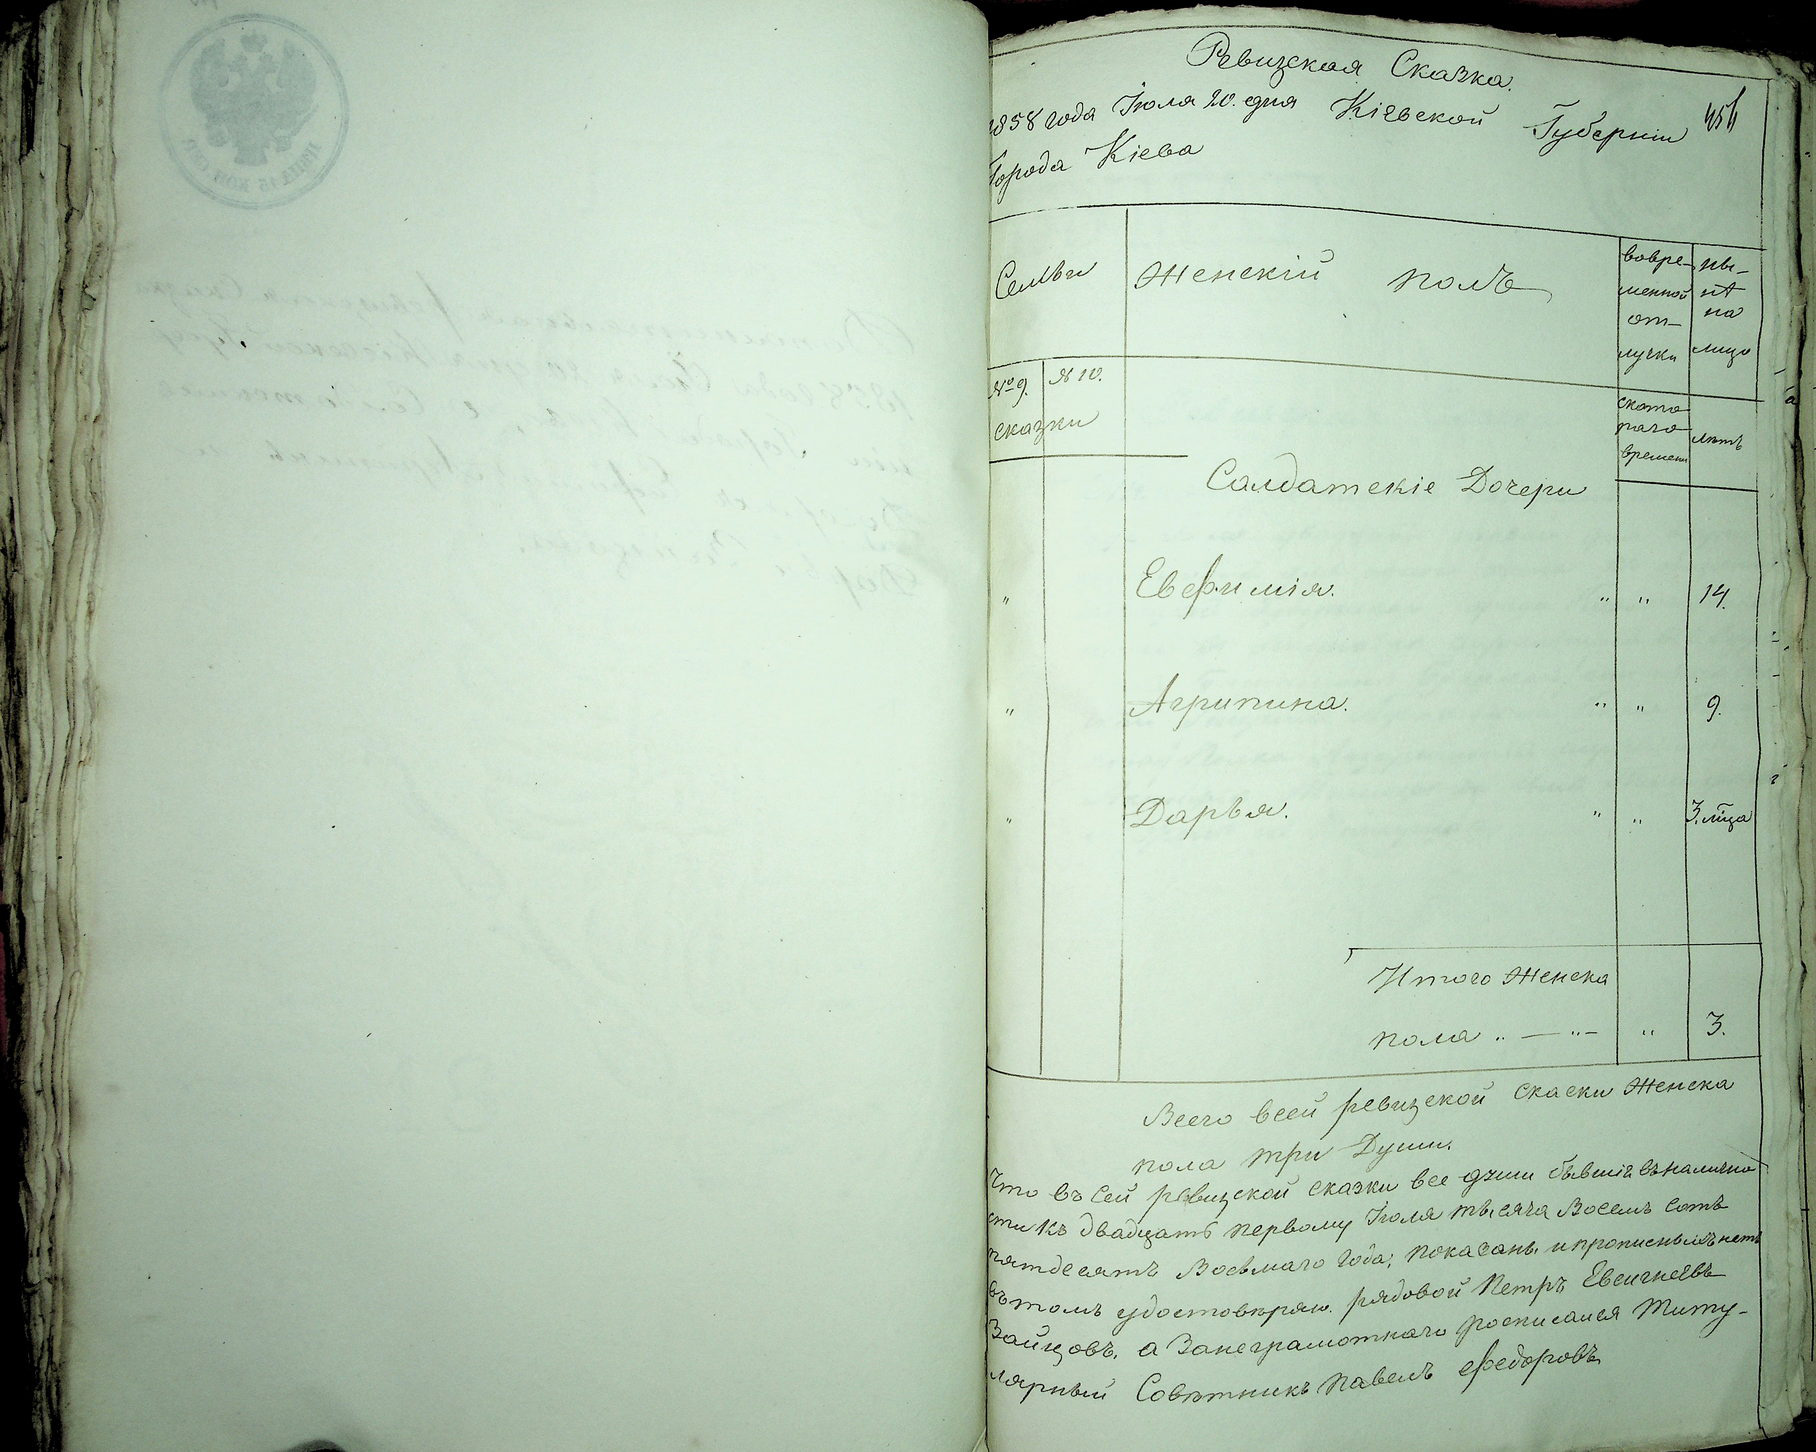 Ревизская Сказка.
1858 года Іюля 20. дня Кіевской Губерніи
Города Кіева
Семьи
Женскій полъ
вовре-
менной
от-
лучки
ны-
нѣ
на
лицо
№ 9. № 10.
сказки
ското
раго
времени
лѣтъ
Салдатскіе Дочери
" Евфимія. " " 14.
" Агрипина. " " 9.
" Дарья. " " 3. мца
Итого Женска
пола " — " — " 3.
Всего всей ревизской скаски Женска
пола три Души.
Что въ сей ревизской сказки все души бывшіе въ налично
сти къ двадцать первому Іюля тысяча Восемь сотъ
пятдесятъ Восьмаго года, показаны и прописныхъ нетъ
въ томъ удостовѣряю. рядовой Петръ Евсигнеевъ
Зайцовъ. а За неграмотнаго росписался Титу-
лярный Совѣтникъ Павелъ Федоровъ